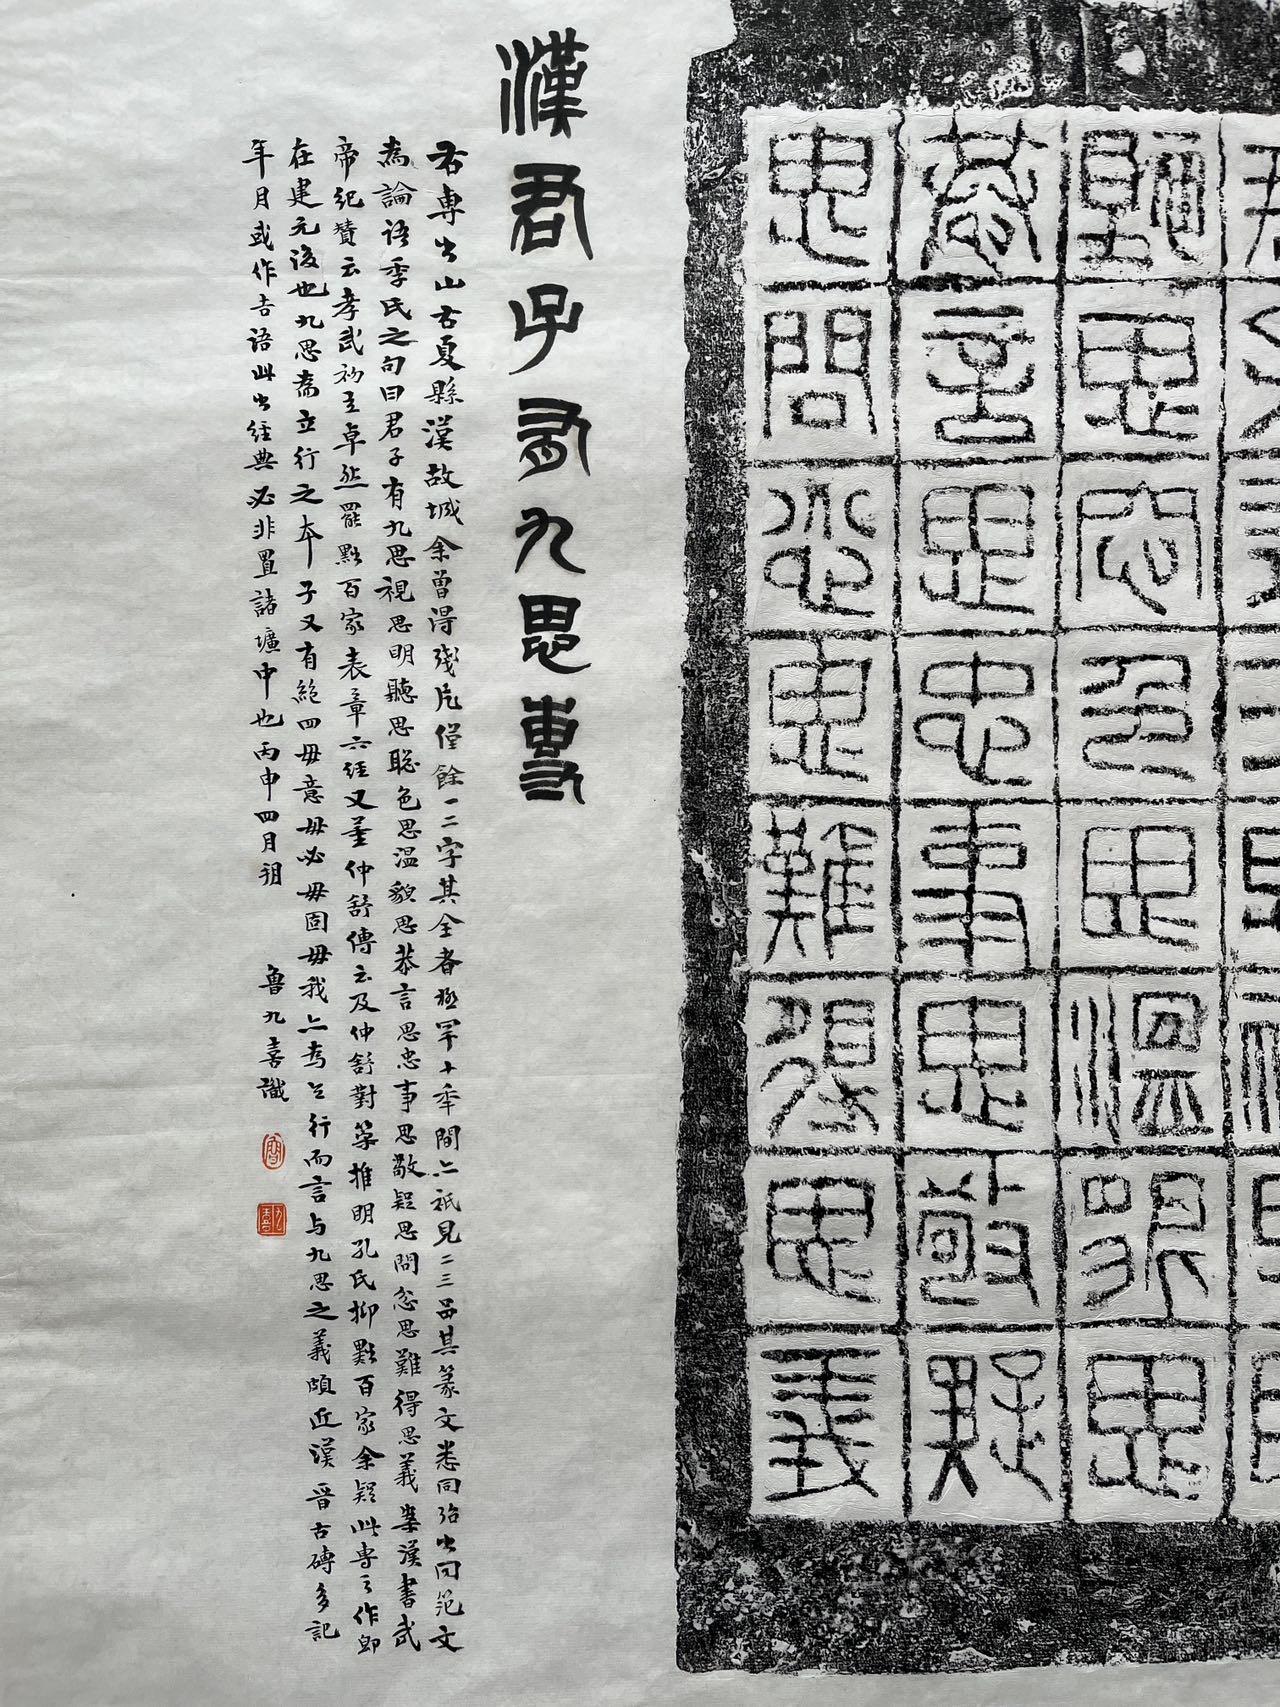 聽思悤色思温貌思
恭言思忠事思敬疑
思問忿思難得思義
漢君子有九思甎
右專出山右夏縣漢故城余曾得殘片僅餘一二字其全者極罕十年間亦祇見二三品其篆文悉同殆出同范文
為論語季氏之句曰君子有九思視思明聽思聰色思温貌思恭言思忠事思敬疑思問忿思難得思義案漢書武
帝紀贊云孝武初立卓然罷黜百家表章六經又董仲舒傳云及仲舒對策推明孔氏抑黜百家余疑此專之作即
在建元後也九思為立行之本子又有絕四毋意毋必毋固毋我亦為立行而言与九思之義頗近漢晉古磚多記
年月或作吉語此出經典必非置諸壙中也丙申四月
魯九喜識
九喜